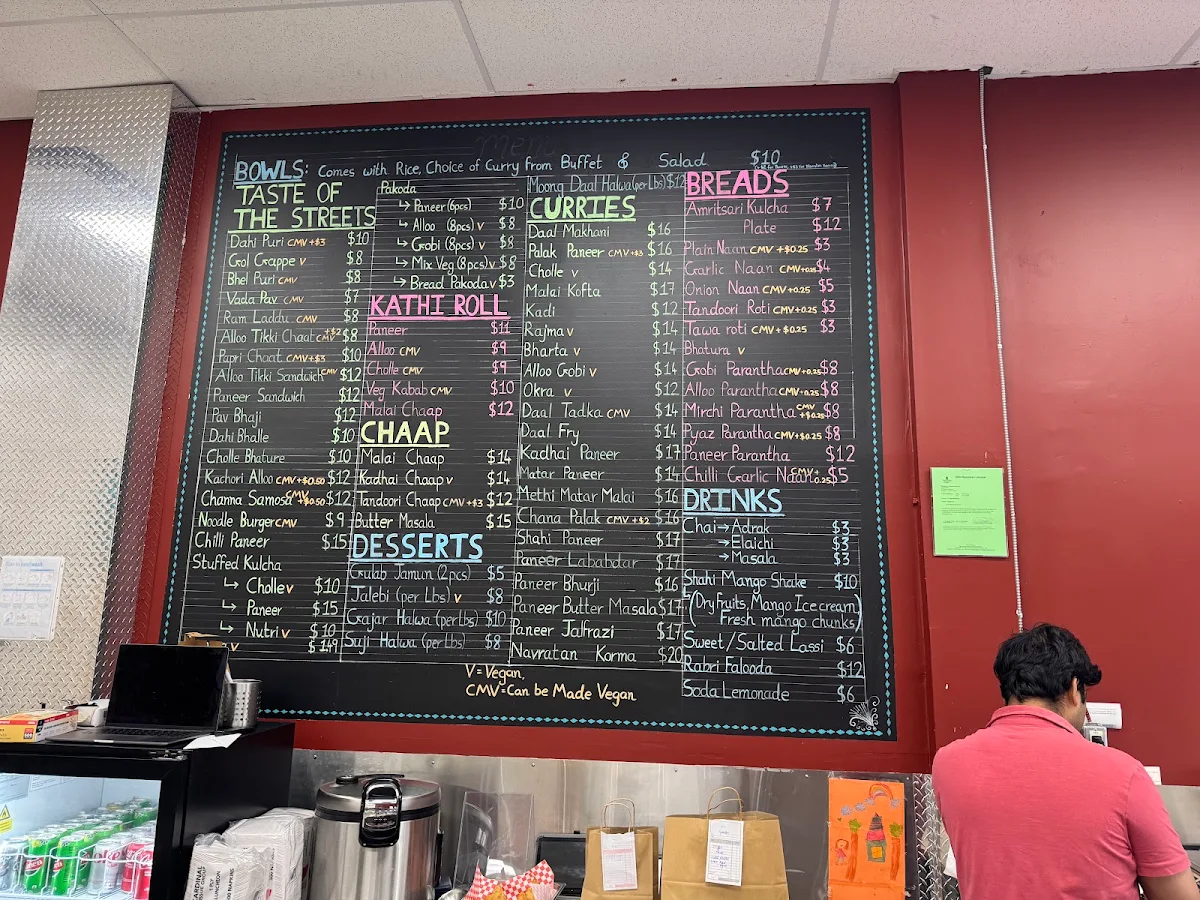 Menu
BOWLS: Comes with Rice, Choice of Curry from Buffet & Salad $10
TASTE OF
THE STREETS
Dahi Puri CMV+$3 $10
Gol Gappe V $8
Bhel Puri CMV $8
Vada Pav CMV $7
Ram Laddu CMV $8
Alloo Tikki Chaat CMV+$2 $8
Papri Chaat CMV+$3 $10
Alloo Tikki Sandwich CMV $12
Paneer Sandwich $12
Pav Bhaji $12
Dahi Bhalle $10
Cholle Bhature $10
Kachori Alloo CMV+$0.50 $12
Channa Samosa CMV+$0.50 $12
Noodle Burger CMV $9
Chilli Paneer $15
Stuffed Kulcha
↳ Cholle V $10
↳ Paneer $15
↳ Nutri V $10
V $14
Pakoda
↳ Paneer (6pcs) $10
↳ Alloo (8pcs) V $8
↳ Gobi (8pcs) V $8
↳ Mix Veg (8pcs) V $8
↳ Bread Pakoda V $3
KATHI ROLL
Paneer $11
Alloo CMV $9
Cholle CMV $9
Veg Kabab CMV $10
Malai Chaap $12
CHAAP
Malai Chaap $14
Kadhai Chaap V $14
Tandoori Chaap CMV+$3 $12
Butter Masala $15
DESSERTS
Gulab Jamun (2pcs) $5
Jalebi (per Lbs) V $8
Gajar Halwa (per lbs) $10
Suji Halwa (per lbs) $8
Moong Daal Halwa (per Lbs) $12
CURRIES
Daal Makhani $16
Palak Paneer CMV+$3 $16
Cholle V $14
Malai Kofta $17
Kadi $12
Rajma V $14
Bharta V $14
Alloo Gobi V $14
Okra V $12
Daal Tadka CMV $14
Daal Fry $14
Kadhai Paneer $17
Matar Paneer $14
Methi Matar Malai $16
Chana Palak CMV+$2 $16
Shahi Paneer $17
Paneer Lababdar $17
Paneer Bhurji $16
Paneer Butter Masala $17
Paneer Jalfrazi $17
Navratan Korma $20
BREADS
Amritsari Kulcha $7
Plate $12
Plain Naan CMV+$0.25 $3
Garlic Naan CMV+0.25 $4
Onion Naan CMV+0.25 $5
Tandoori Roti CMV+0.25 $3
Tawa roti CMV+$0.25 $3
Bhatura V
Gobi Parantha CMV+0.25 $8
Alloo Parantha CMV+0.25 $8
Mirchi Parantha CMV+$0.25 $8
Pyaz Parantha CMV+$0.25 $8
Paneer Parantha $12
Chilli Garlic Naan CMV+0.25 $5
DRINKS
Chai → Adrak $3
→ Elaichi $3
→ Masala $3
Shahi Mango Shake $10
(Dry Fruits, Mango Ice cream,
Fresh mango chunks)
Sweet/Salted Lassi $6
Rabri Falooda $12
Soda Lemonade $6
V = Vegan,
CMV = Can be Made Vegan
CARDINAL
LUNCHEON
1 PLY
NAPKINS